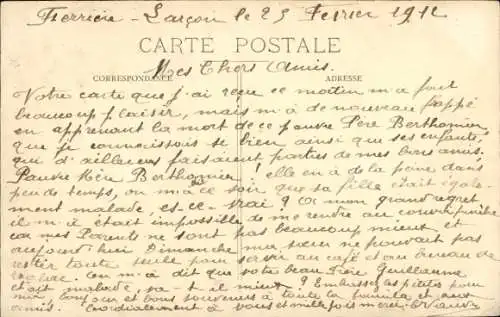 Ferrière-Larçon le 25 Février 1912
CARTE POSTALE
Mes Chers Amis.
CORRESPONDANCE ADRESSE
Votre carte que j'ai reçue ce matin m'a fait
beaucoup plaisir, mais m'a de nouveau frappé
en apprenant la mort de ce pauvre Père Berthomier
que je connaissais si bien ainsi que ses enfants
qui d'ailleurs faisaient parties de mes bons amis.
Pauvre Mère Berthomier! elle en a de la peine dans
peu de temps, on m'a dit ce soir que sa fille était égale-
ment malade, es-ce-vrai? A mon grand regret
il m'était impossible de me rendre au convoi funèbre
car mes Parents ne sont pas beaucoup mieux et
aujourd'hui Dimanche ma sœur ne pouvait pas
rester toute seule pour servir au café et au bureau de
tabac. On m'a dit que votre beau Frère Guillaume
était malade, va-t-il mieux? Embrassez les petites pour
moi, bonjour et bons souvenirs à toute la famille et aux
amis. Cordialement à vous et mille fois merci.